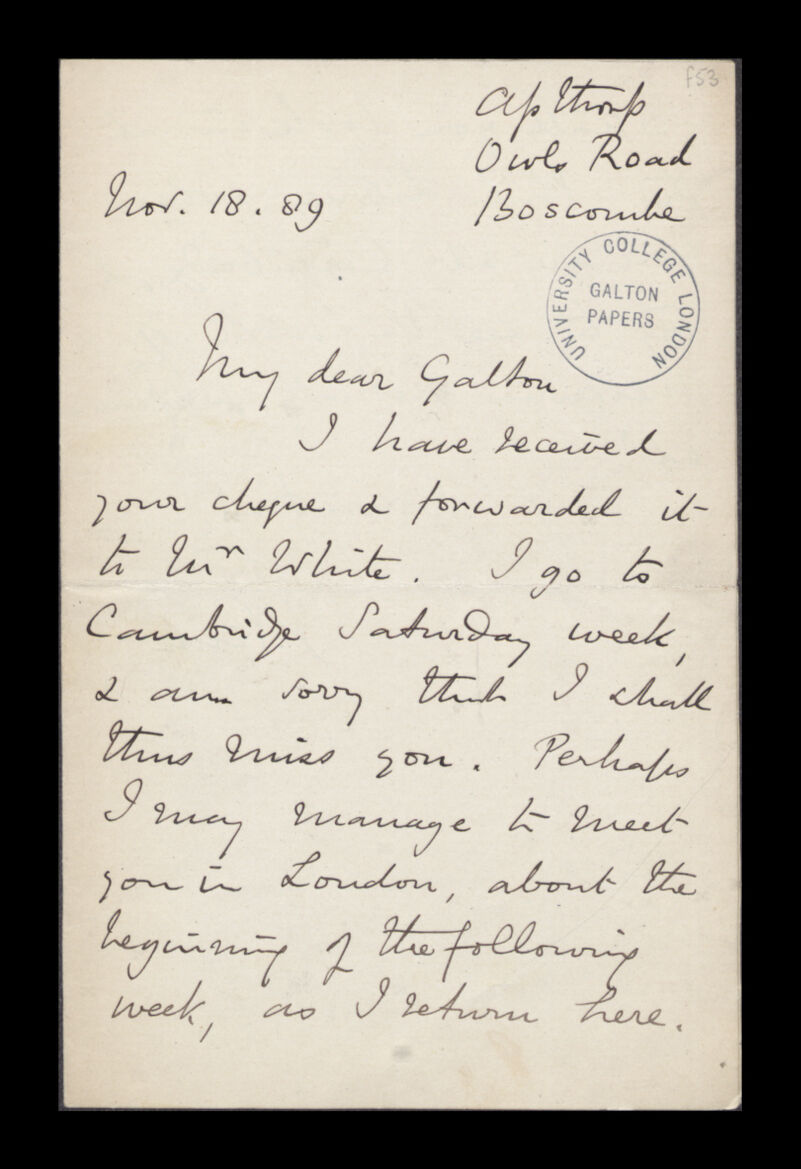 f53
Apthorp
Owls Road
Boscombe
Nov. 18. 89
UNIVERSITY COLLEGE LONDON
GALTON
PAPERS
My dear Galton
I have received
your cheque & forwarded it
to Mr White. I go to
Cambridge Saturday week,
& am sorry that I shall
thus miss you. Perhaps
I may manage to meet
you in London, about the
beginning of the following
week, as I return here.